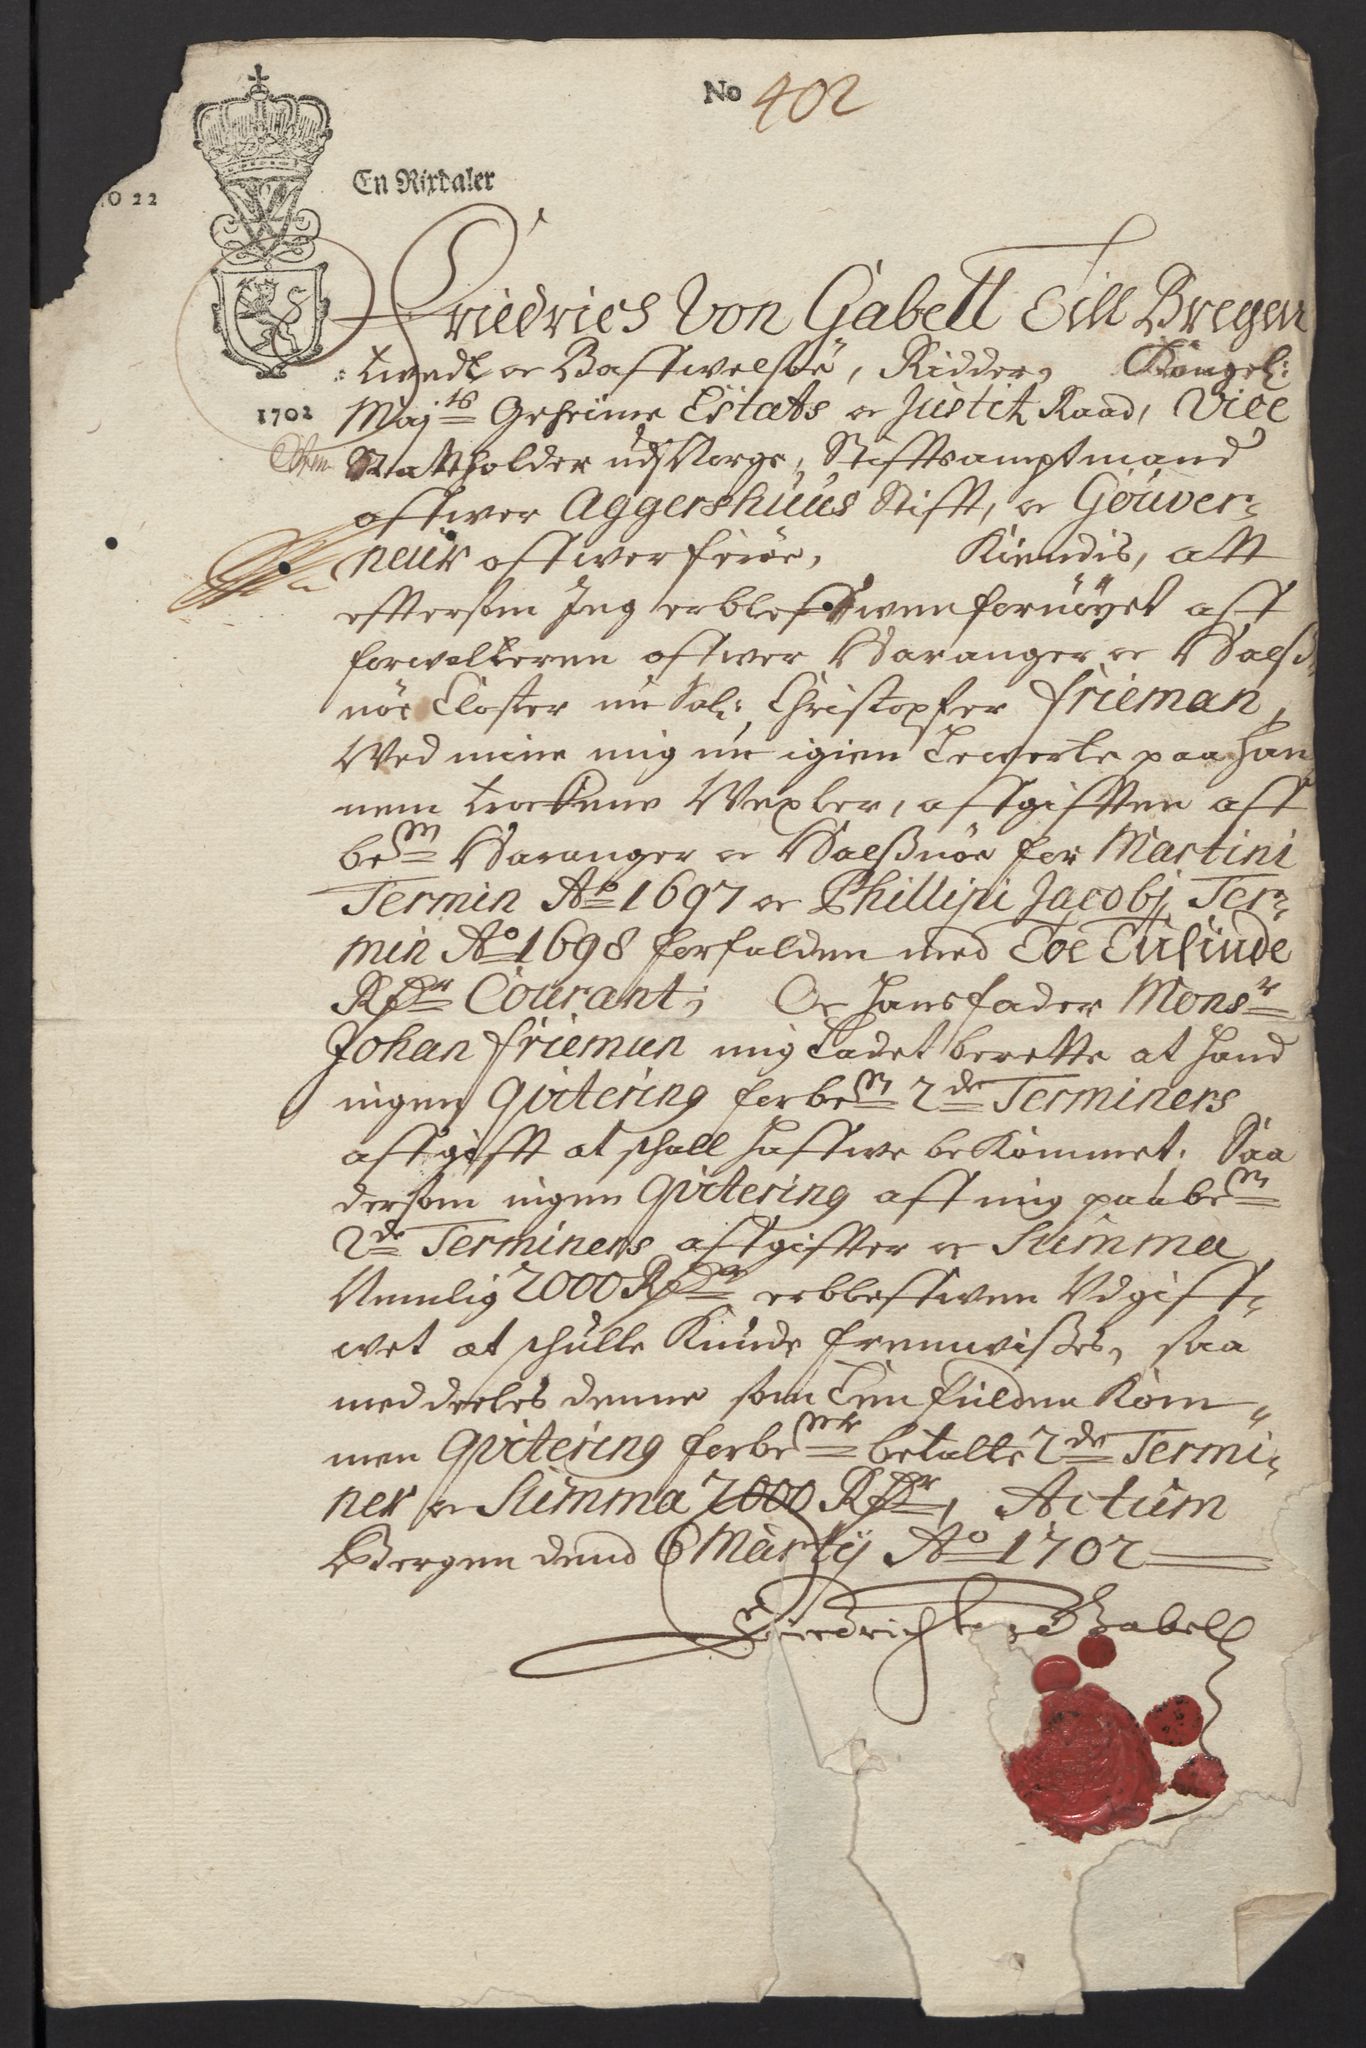 No 402
En Rixdaler
1702
Friedrich Von Gabell Till Bregen
twedt oc Bafftwelsøe, Ridder, Kongel:
Maj:ts Geheime Estats oc Justits Raad, Vice
Statholder udj Norge, Stifftsamptmand
offwer Aggershuus Stifft, oc Gouver-
neur offwer ferøe, Kiendis, att
efftersom Jeg er bleffwen fornöyet aff
forwalteren offwer Waranger oc Halß-
nöe Closter nu Sal: Christopher frieman,
Wed mine mig nu igien paa han
nem trockene Wexler, affgifften aff
bem Waranger oc Halßnöe for Martini
Termin Ao 1697 oc Phillipi Jacobj Ter-
min Ao 1698 forfalden med Toe Tusinde
Rdr Courant; Oc hans fader Monsr
Johan frieman mig ladet berette at hand
ingen Qvitering for bem 2de Terminers
affgifft at schall haffwe bekommet. Saa
dersom ingen Qvitering aff mig paa bem
2de Terminers affgiffter oc Summa
Nemlig 2000 Rdr er bleffwen Udgiff-
wet at schulle kunde fremwißes, saa
meddeeles denne som een fulden kom-
men Qvitering for bemte betalte 2de Termi-
ner oc Summa 2000 Rdr, Actum
Bergen dend 6 Martij Ao 1702
Friedrich von Gabell